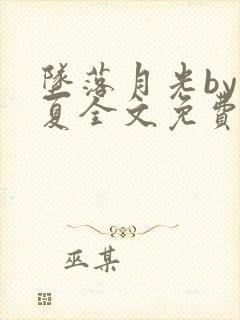 墜落月光by
夏全文免費
巫某